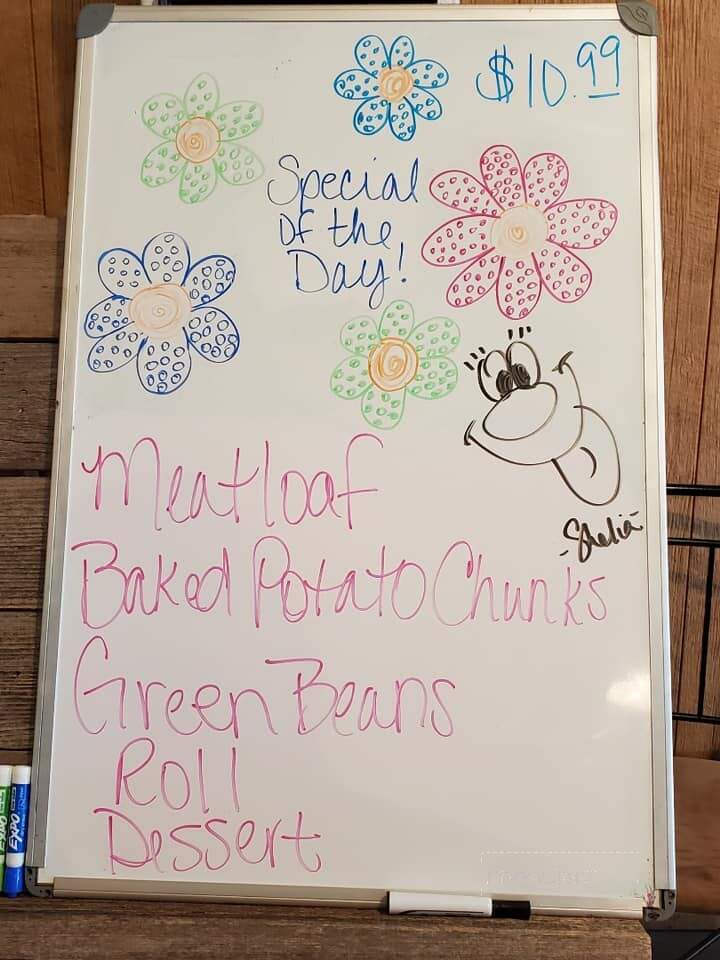 $10.99
Special
Of the
Day!
-Shelia-
Meatloaf
Baked Potato Chunks
Green Beans
Roll
Dessert
EXPO
EXPO